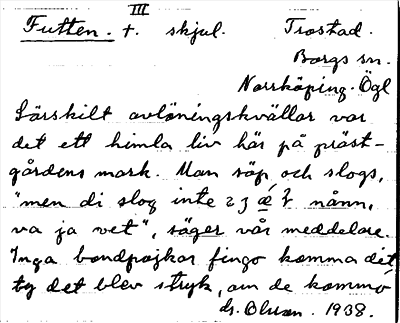 III
Futten. t. skjul. Trostad.
Borgs sn.
Norrköping. Ögl
Särskilt avlöningskvällar var
det ett himla liv här på präst-
gårdens mark. Man söp och slogs,
"men di slog inte
va ja vet", säger vår meddelare.
Inga bondpojkar fingo komma dit
ty det blev stryk, om de kommo
ds. Olsson. 1938.